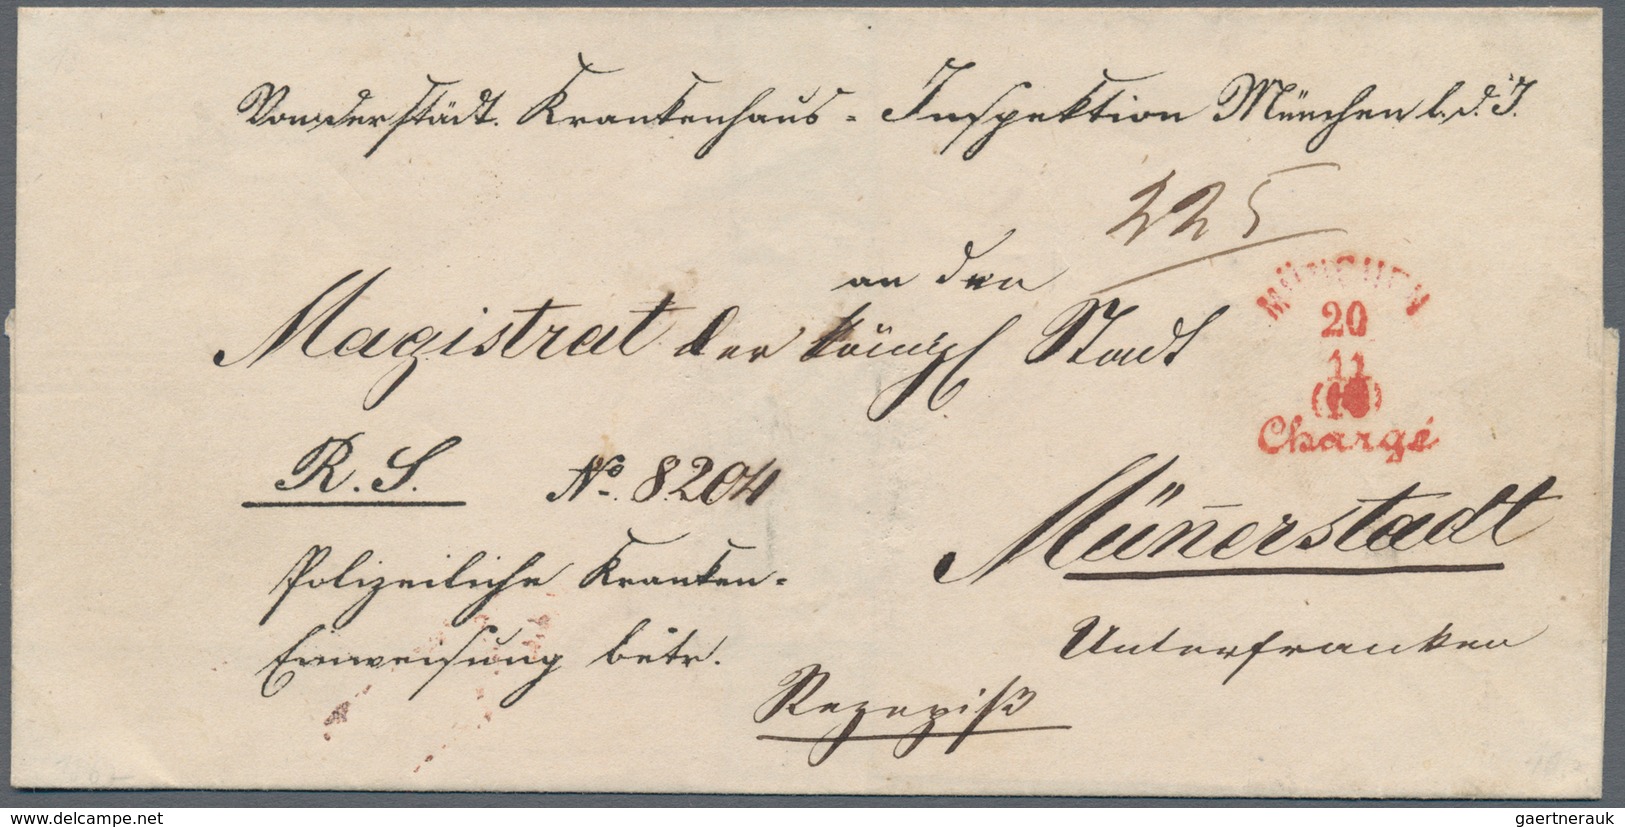 Von der städt. Krankenhaus-Inspektion München l. d. I.
225
an den
Magistrat der königl Stadt
MÜNCHEN
20
11
Chargé
R. S. No. 8204
Mün̄erstadt
Polizeiliche Kranken-
Einweisung betr.
Unterfranken
Rezepiß
www.delcampe.net
gaertnerauk